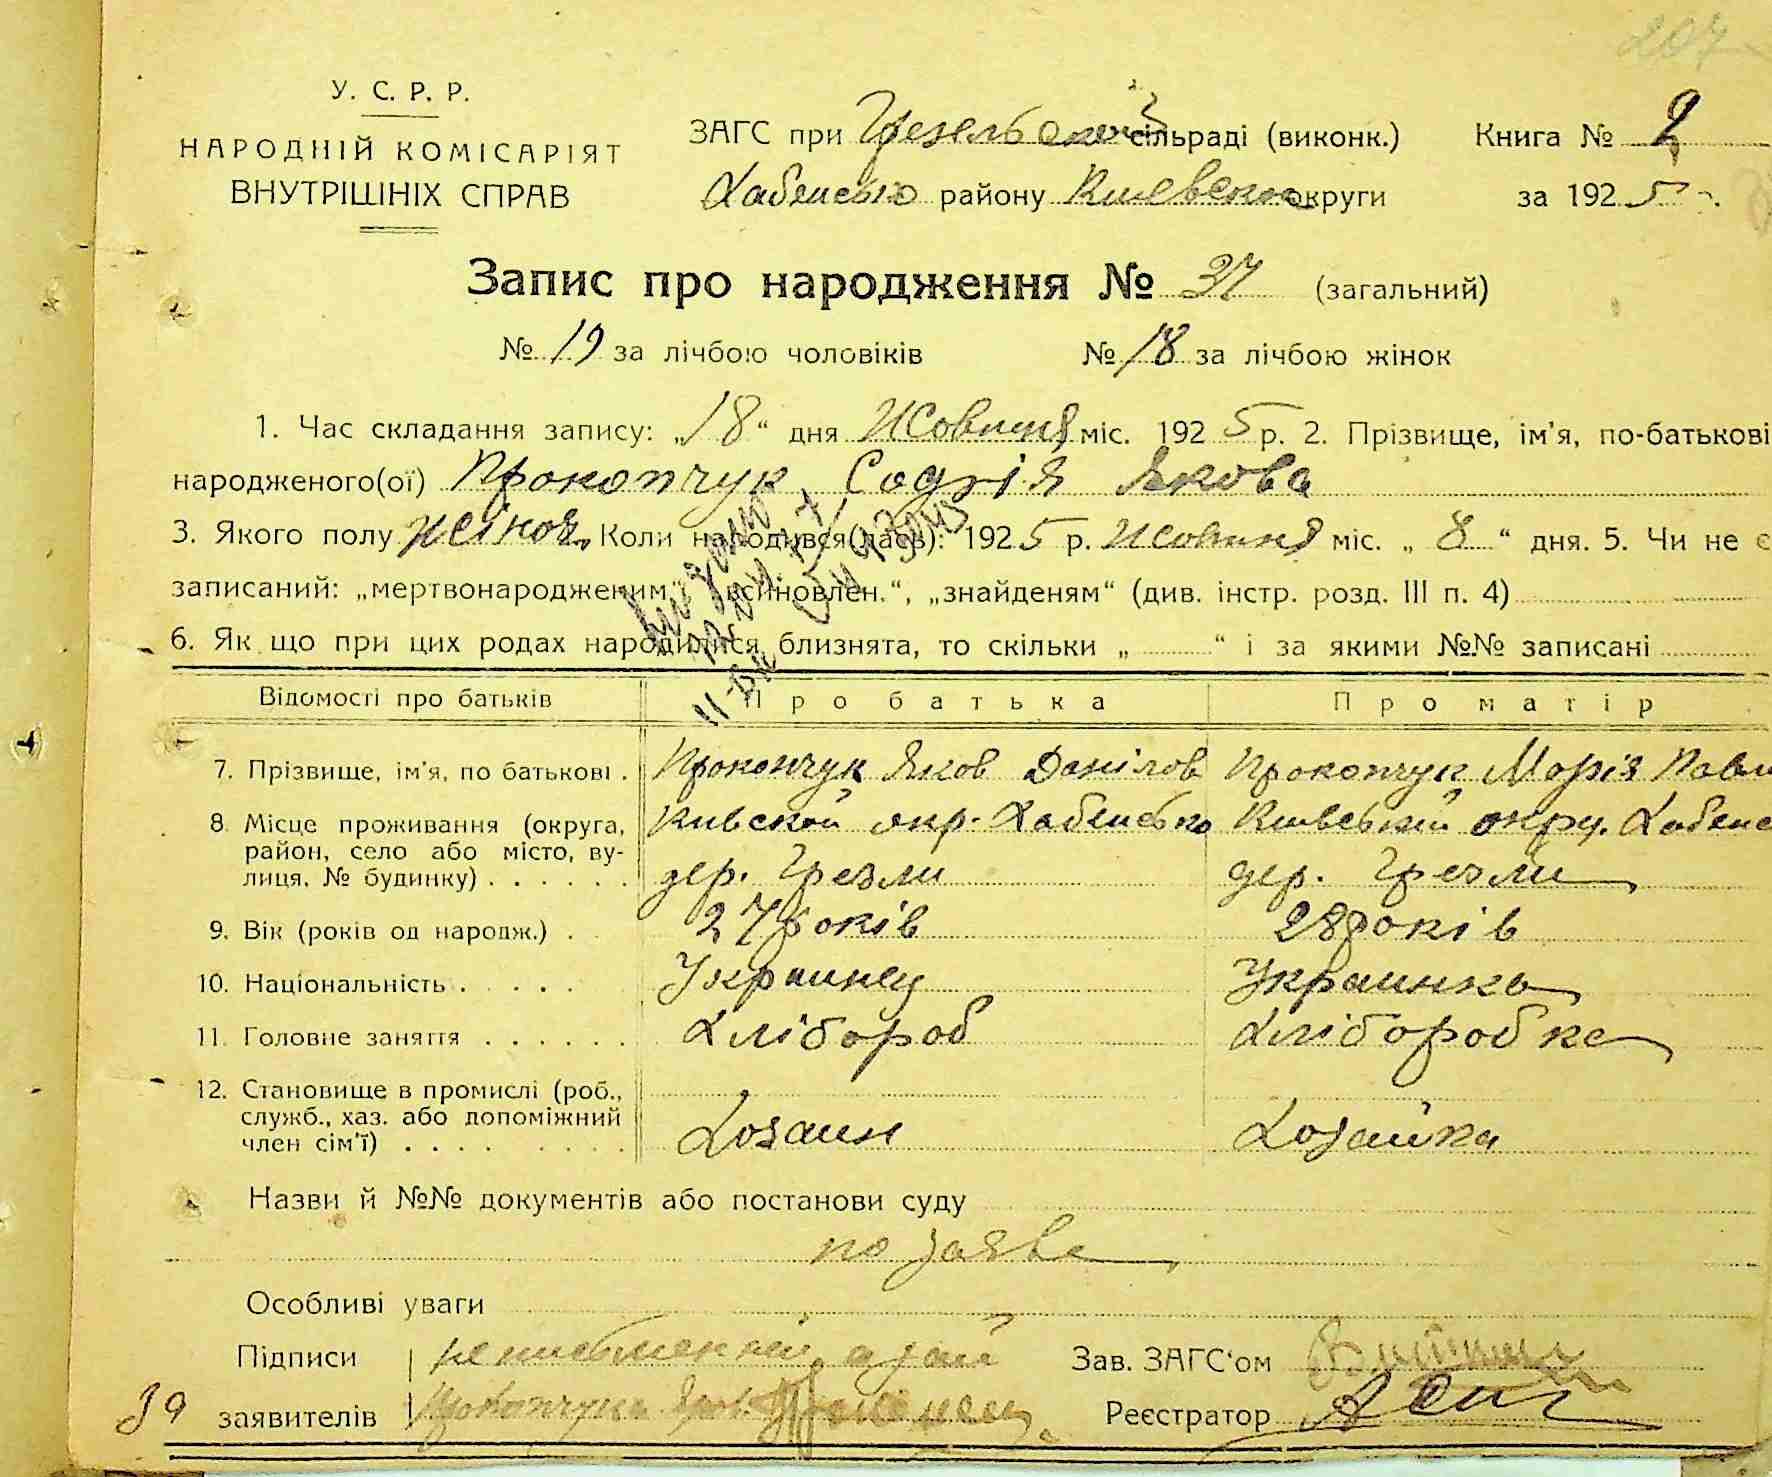 207
У. С. Р. Р.
НАРОДНІЙ КОМІСАРІЯТ
ВНУТРІШНІХ СПРАВ
ЗАГС при Грезельской сільраді (виконк.) Книга № 2
Хабенсько району Киевско округи за 1925 .
Запис про народження № 37 (загальний)
№ 19 за лічбою чоловіків № 18 за лічбою жінок
1. Час складання запису: „18“ дня Жовтня міс. 1925 р. 2. Прізвище, ім'я, по-батькові
народженого(ої) Прокопчук Софія Якова
3. Якого полу жіноч. Коли народився(лась): 1925 р. Жовтня міс. „8“ дня. 5. Чи не є
записаний: „мертвонародженим“, „всиновлен.“, „знайденям“ (див. інстр. розд. III п. 4)
6. Як що при цих родах народилися близнята, то скільки „ “ і за якими №№ записані
Відомості про батьків Про батька Про матір
7. Прізвище, ім'я, по батькові . Прокопчук Яков Данілов Прокопчук Марія Павл
8. Місце проживання (округа, Кивской окр. Хабенсько Киевський окру. Хабенс
район, село або місто, ву-
лиця, № будинку) . . . . . . дер. Грезли дер. Грезли
9. Вік (років од народж.) . 27 років 28 років
10. Національність . . . . . Украинец Украинка
11. Головне заняття . . . . . . Хлібороб Хліборобка
12. Становище в промислі (роб.,
служб., хаз. або допоміжний
член сім'ї) . . . . . . . . Хозаин Хозайка
Назви й №№ документів або постанови суду
по заяве
Особливі уваги
Підписи неписьменний а за Зав. ЗАГС'ом
39 заявителів Прокопчука Реєстратор